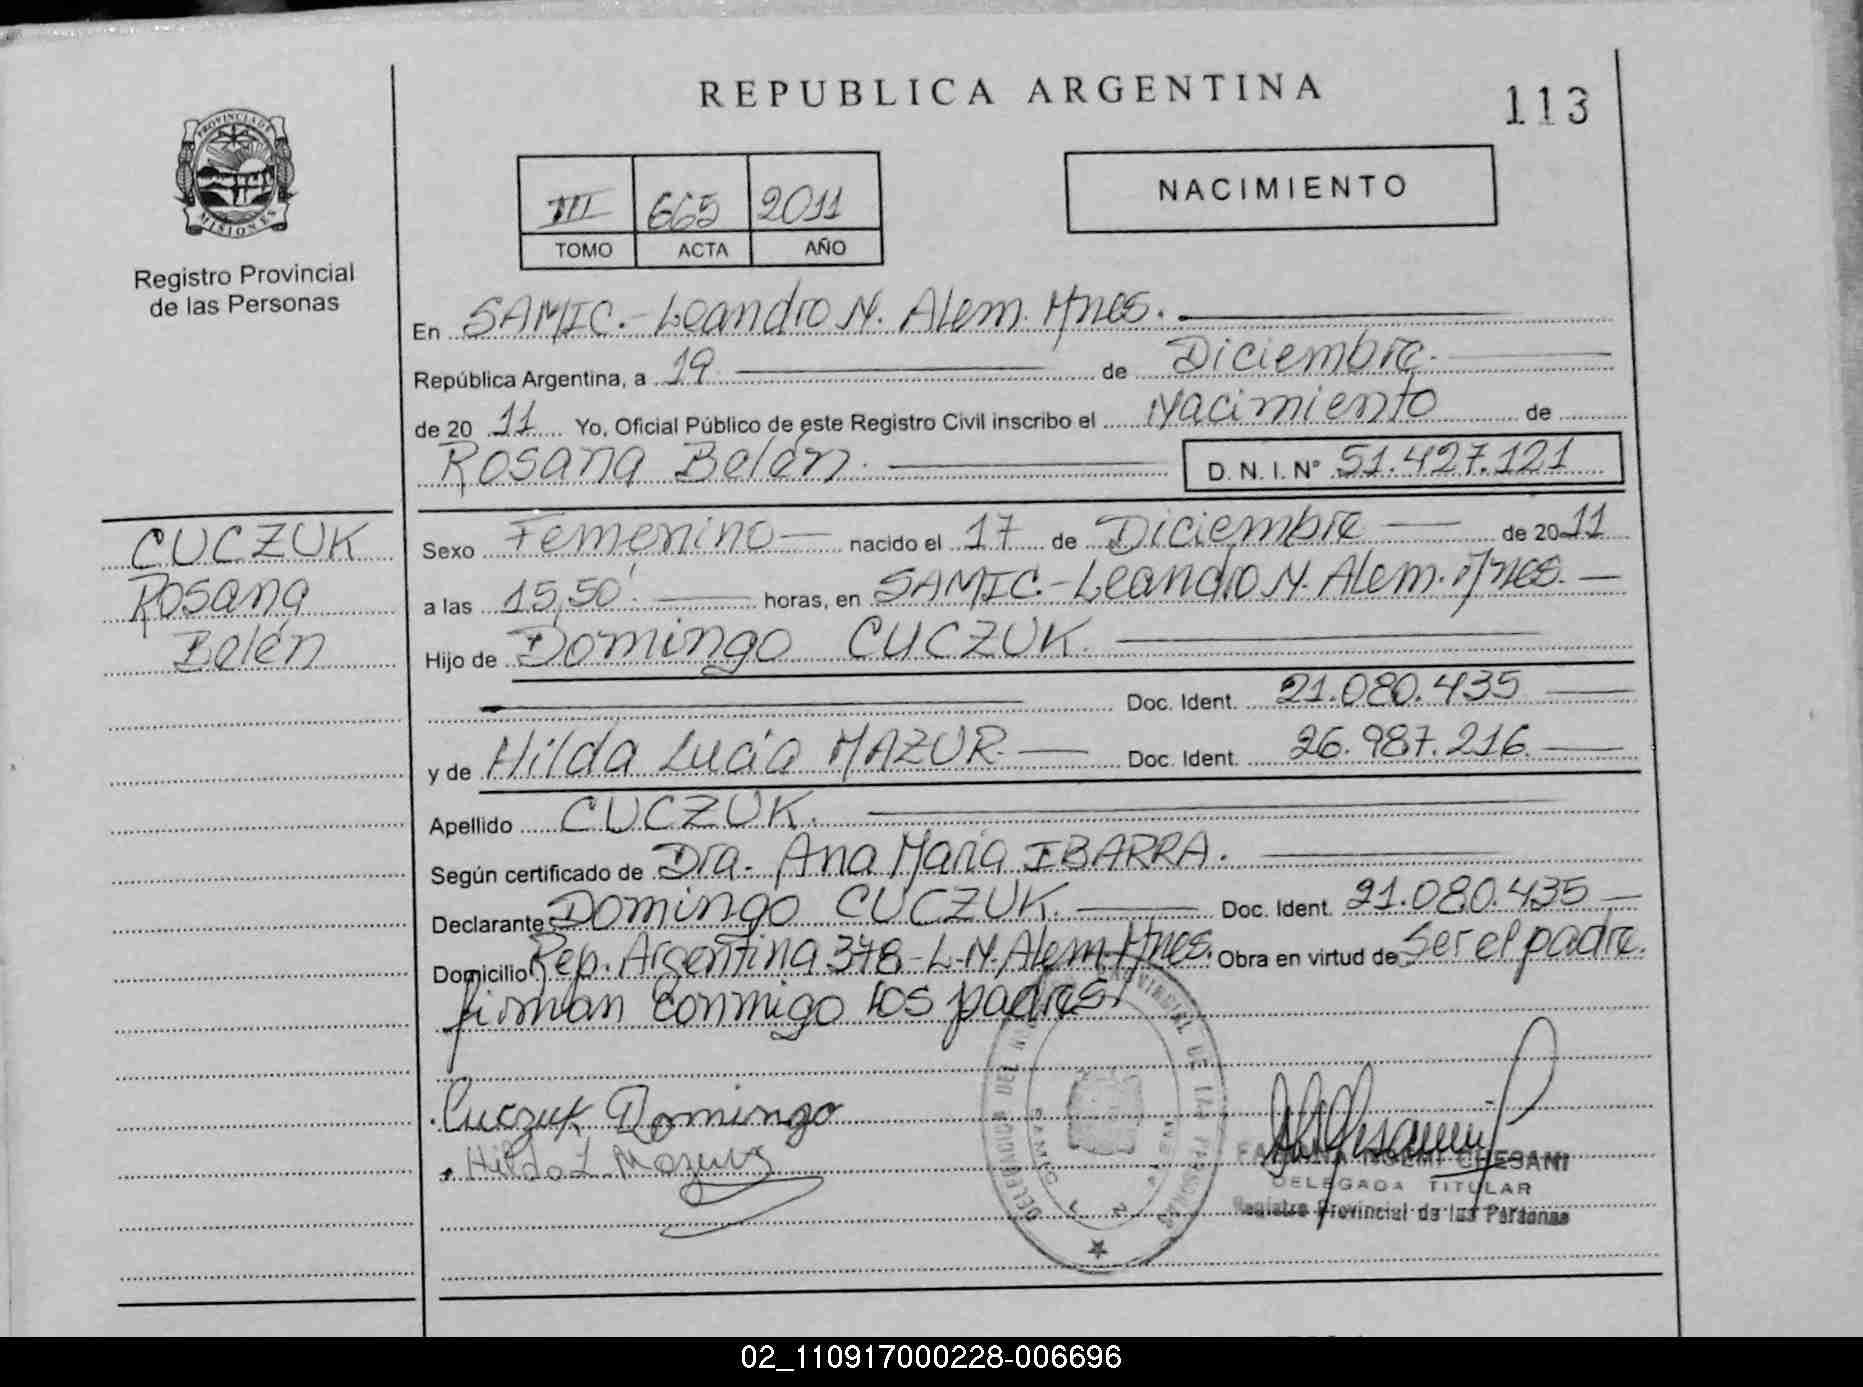 REPUBLICA ARGENTINA
113
PROVINCIA DE
MISIONES
Registro Provincial
de las Personas
III 665 2011
TOMO ACTA AÑO
NACIMIENTO
En SAMIC.-Leandro N. Alem. Mnes.
República Argentina, a 19 de Diciembre.
de 20 11 Yo, Oficial Público de este Registro Civil inscribo el Nacimiento de
Rosana Belén. D. N. I. Nº 51.427.121
CUCZUK
Rosana
Belén
Sexo Femenino nacido el 17 de Diciembre de 20 11
a las 15,50'. horas, en SAMIC.-Leandro N. Alem. Mnes.
Hijo de Domingo CUCZUK.
Doc. Ident. 21.080.435
y de Hilda Lucia MAZUR. Doc. Ident. 26.987.216
Apellido CUCZUK.
Según certificado de Dra. Ana Maria IBARRA.
Declarante Domingo CUCZUK. Doc. Ident. 21.080.435
Domicilio Rep. Argentina 378-L.N. Alem. Mnes. Obra en virtud de Ser el padre.
firman conmigo los padres.
Cuczuk Domingo
Hilda L. Mazur
NOEMI CHESANI
DELEGADA TITULAR
Registro Provincial de las Personas
02_110917000228-006696